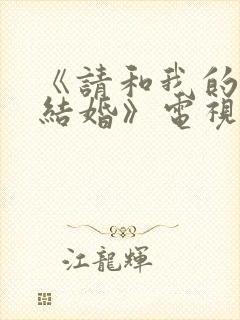 《請和我的
結婚》電視
江龍輝